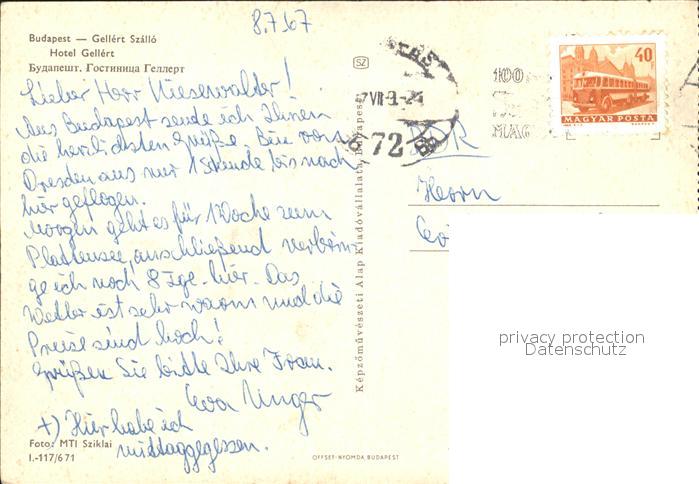 8.7.67
Budapest — Gellért Szálló
Hotel Gellért
Будапешт. Гостиница Геллерт
Lieber Herr Nieserwalder!
Aus Budapest sende ich Ihnen
die herzlichsten Grüße. Bin von
Dresden aus nur 1 Stunde bis nach
hier geflogen.
Morgen geht es für 1 Woche zum
Plattensee, anschließend verbrin-
ge ich noch 8 Tge. hier. Das
Wetter ist sehr warm und die
Preise sind hoch!
Grüßen Sie bitte Ihre Frau.
Eva Unger
+) Hier habe ich
mittaggegessen.
Foto: MTI Sziklai
I.-117/671
OFFSET-NYOMDA BUDAPEST
Képzőművészeti Alap Kiadóvállalata, Budapest
SZ
72
100
MAG
40
MAGYAR POSTA
DDR
Herrn
privacy protection
Datenschutz